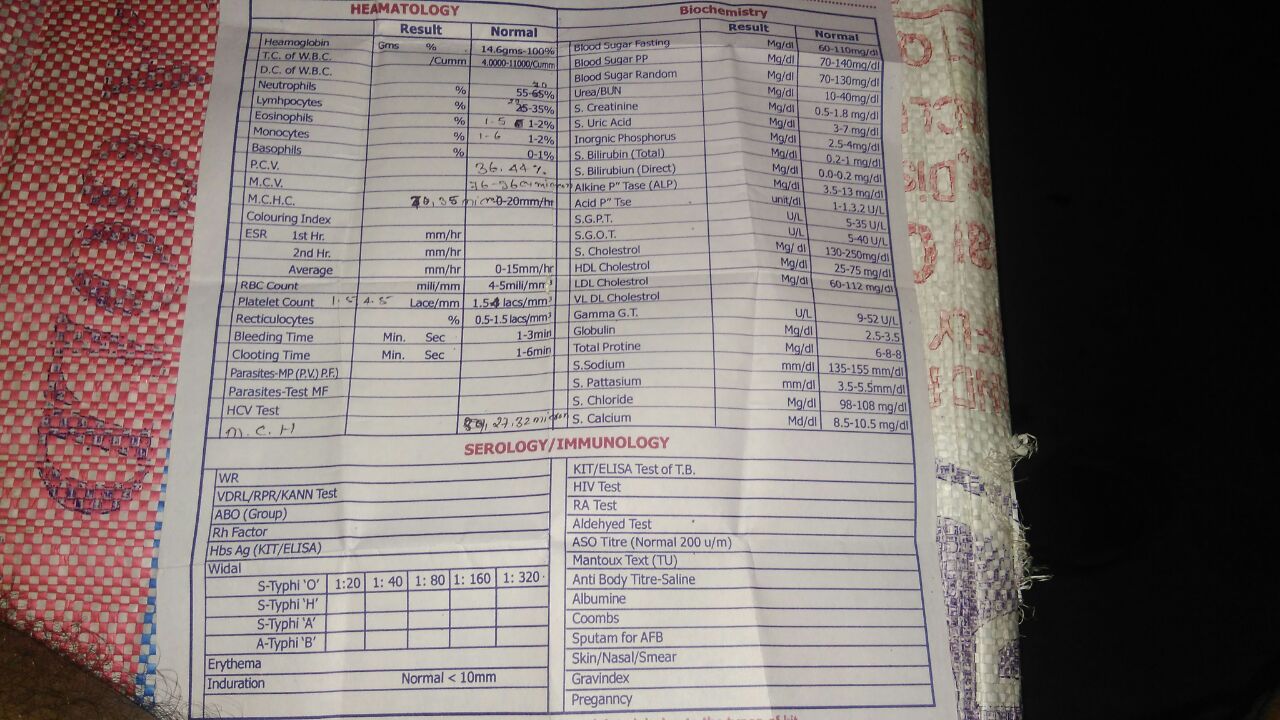 HEAMATOLOGY
Result Normal
Heamoglobin Gms % 14.6gms-100%
T.C. of W.B.C. /Cumm 4.0000-11000/Cumm
D.C. of W.B.C.
Neutrophils % 55-65% 70
Lymhpocytes % 25-35%
Eosinophils % 1-5 1-2%
Monocytes % 1-6 1-2%
Basophils % 0-1%
P.C.V. 36.44%
M.C.V.
M.C.H.C. 0-20mm/hr
Colouring Index
ESR 1st Hr. mm/hr
2nd Hr. mm/hr
Average mm/hr 0-15mm/hr
RBC Count mili/mm 4-5mili/mm³
Platelet Count 1.5 4.5 Lace/mm 1.5-4 lacs/mm³
Recticulocytes % 0.5-1.5 lacs/mm³
Bleeding Time Min. Sec 1-3min
Clooting Time Min. Sec 1-6min
Parasites-MP (P.V.) P.F.)
Parasites-Test MF
HCV Test
M.C.H
Biochemistry
Result Normal
Blood Sugar Fasting Mg/dl 60-110mg/dl
Blood Sugar PP Mg/dl 70-140mg/dl
Blood Sugar Random Mg/dl 70-130mg/dl
Urea/BUN Mg/dl 10-40mg/dl
S. Creatinine Mg/dl 0.5-1.8 mg/dl
S. Uric Acid Mg/dl 3-7 mg/dl
Inorgnic Phosphorus Mg/dl 2.5-4mg/dl
S. Bilirubin (Total) Mg/dl 0.2-1 mg/dl
S. Bilirubiun (Direct) Mg/dl 0.0-0.2 mg/dl
Alkine P" Tase (ALP) Mg/dl 3.5-13 mg/dl
Acid P" Tse unit/dl 1-1.3.2 U/L
S.G.P.T. U/L 5-35 U/L
S.G.O.T. U/L 5-40 U/L
S. Cholestrol Mg/ dl 130-250mg/dl
HDL Cholestrol Mg/dl 25-75 mg/dl
LDL Cholestrol Mg/dl 60-112 mg/dl
VL DL Cholestrol
Gamma G.T. U/L 9-52 U/L
Globulin Mg/dl 2.5-3.5
Total Protine Mg/dl 6-8-8
S.Sodium mm/dl 135-155 mm/dl
S. Pattasium mm/dl 3.5-5.5mm/dl
S. Chloride Mg/dl 98-108 mg/dl
S. Calcium Md/dl 8.5-10.5 mg/dl
SEROLOGY/IMMUNOLOGY
WR
VDRL/RPR/KANN Test
ABO (Group)
Rh Factor
Hbs Ag (KIT/ELISA)
Widal
S-Typhi 'O' 1:20 1: 40 1: 80 1: 160 1: 320
S-Typhi 'H'
S-Typhi 'A'
A-Typhi 'B'
Erythema
Induration Normal < 10mm
KIT/ELISA Test of T.B.
HIV Test
RA Test
Aldehyed Test
ASO Titre (Normal 200 u/m)
Mantoux Text (TU)
Anti Body Titre-Saline
Albumine
Coombs
Sputam for AFB
Skin/Nasal/Smear
Gravindex
Peganncy